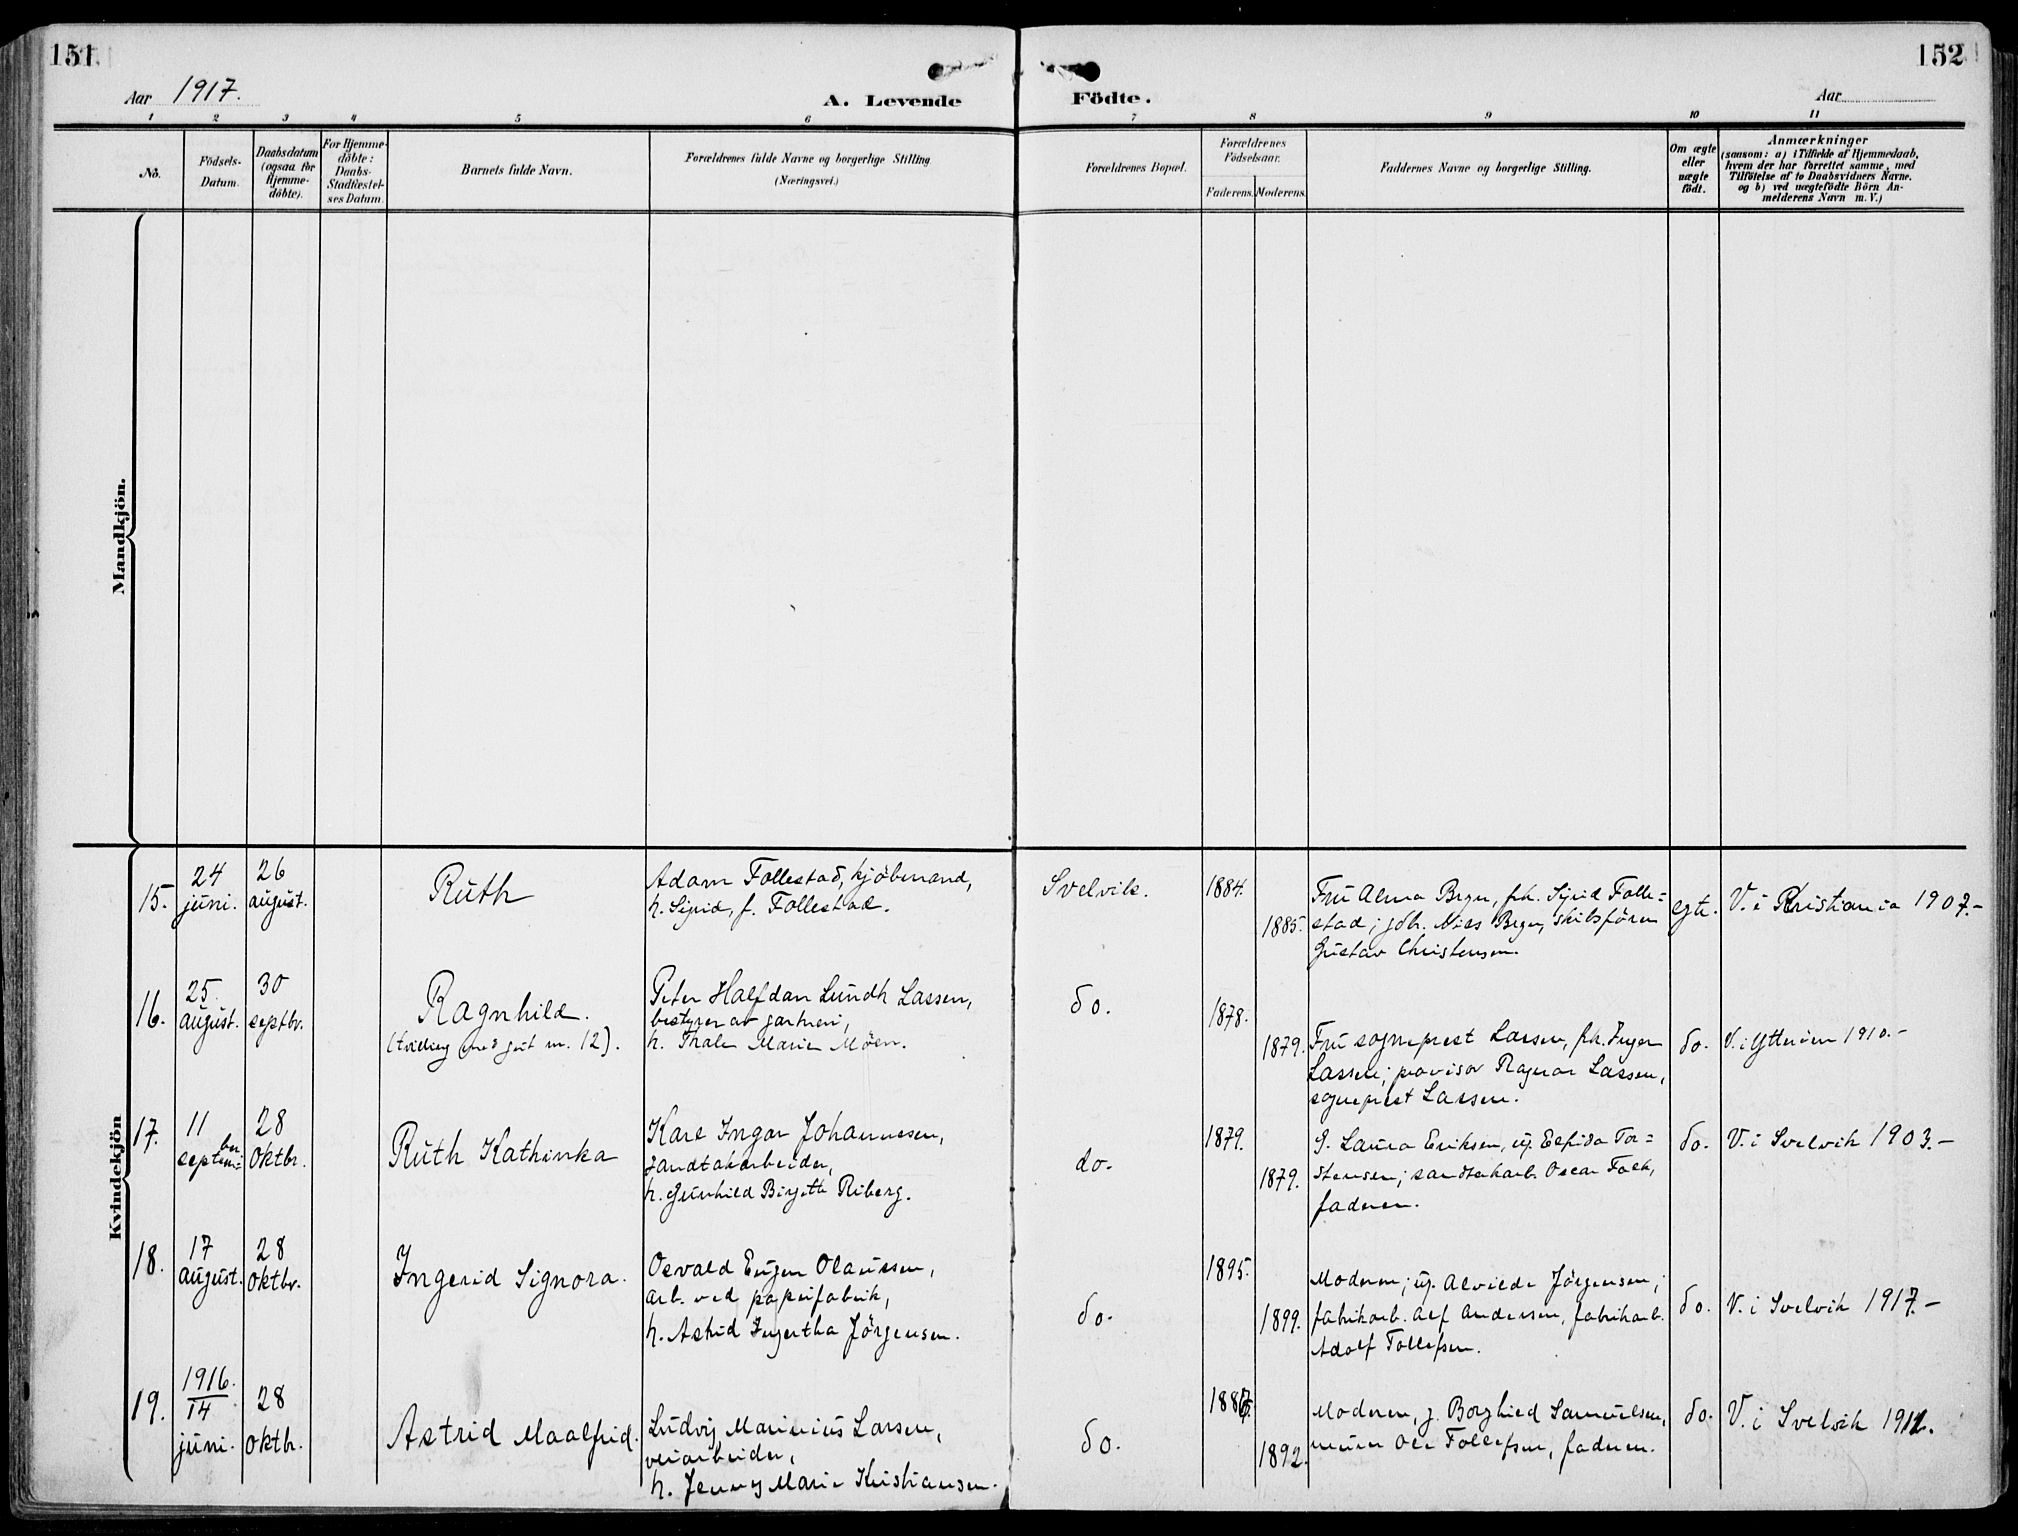 151
152
Aar 1917.
A. Levende Födte.
Aar
1 2 3 4 5 6 7 8 9 10 11
No.
Födsels-
Datum.
Daabsdatum
(ogsaa for
Hjemme-
döbte).
For Hjemme-
döbte:
Daabs-
Stadfæstel-
ses Datum.
Barnets fulde Navn.
Forældrenes fulde Navne og borgerlige Stilling.
(Næringsvei.)
Forældrenes Bopæl.
Forældrenes
Födselsaar.
Faderens. Moderens.
Faddernes Navne og borgerlige Stilling.
Om ægte
eller
uægte
födt.
Anmærkninger
(saasom: a) i Tilfælde af Hjemmedaab,
hvem der har forrettet samme, med
Tilföielse af to Daabsvidners Navne.
og b) ved uægtefödte Börn An-
melderens Navn m. V.)
Mandkjön.
Kvindekjön
15.
24
juni.
26
august.
Ruth
Adam Follestad, kjøbmand,
h. Sigrid, f. Follestad.
Svelvik.
1884.
1885.
Fru Alma Bryn, frk. Sigrid Folle=
stad; Nils Bryn, skibsfører
Gustav Christensen.
egte.
V. i Kristiania 1907.-
16.
25
august.
30
septbr.
Ragnhild.
(tvilling med gut nr. 12).
Peter Halfdan Lundh Lassen,
bestyrer av gartneri,
h. Thale Marie Möen.
do.
1878.
1879.
Fru sogneprest Lassen, frk. Inger
Lassen; provisor Ragnar Lassen,
sogneprest Lassen.
do.
V. i Ytterøen 1910.-
17.
11
septem=
ber
28
oktbr.
Ruth Kathinka
Karl Ingar Johannesen,
sandtakarbeider,
h. Gunhild Birgitte Riberg.
do.
1879.
1879.
G. Laura Eriksen, ug. Elfrida Tor=
stensen; sandtakarb. Oscar Falk,
faderen.
do.
V. i Svelvik 1903.-
18.
17
august.
28
oktbr.
Ingerid Signora.
Osvald Eugen Olaussen,
arb. ved papirfabrik,
h. Astrid Ingertha Jörgensen.
do.
1895.
1899.
Moderen; ug. Alvilde Jörgensen;
fabrikarb. Alf Andersen, fabrikarb.
Adolf Tollefsen.
do.
V. i Svelvik 1917.-
19.
1916.
14
juni.
28
oktbr.
Astrid Maalfrid.
Ludvig Marinius Larsen,
veiarbeider,
h. Jenny Marie Kristiansen.
do.
1892.
Moderen, g. Borghild Samuelsen,
murer Ole Tollefsen, faderen.
do.
V. i Svelvik 1912.